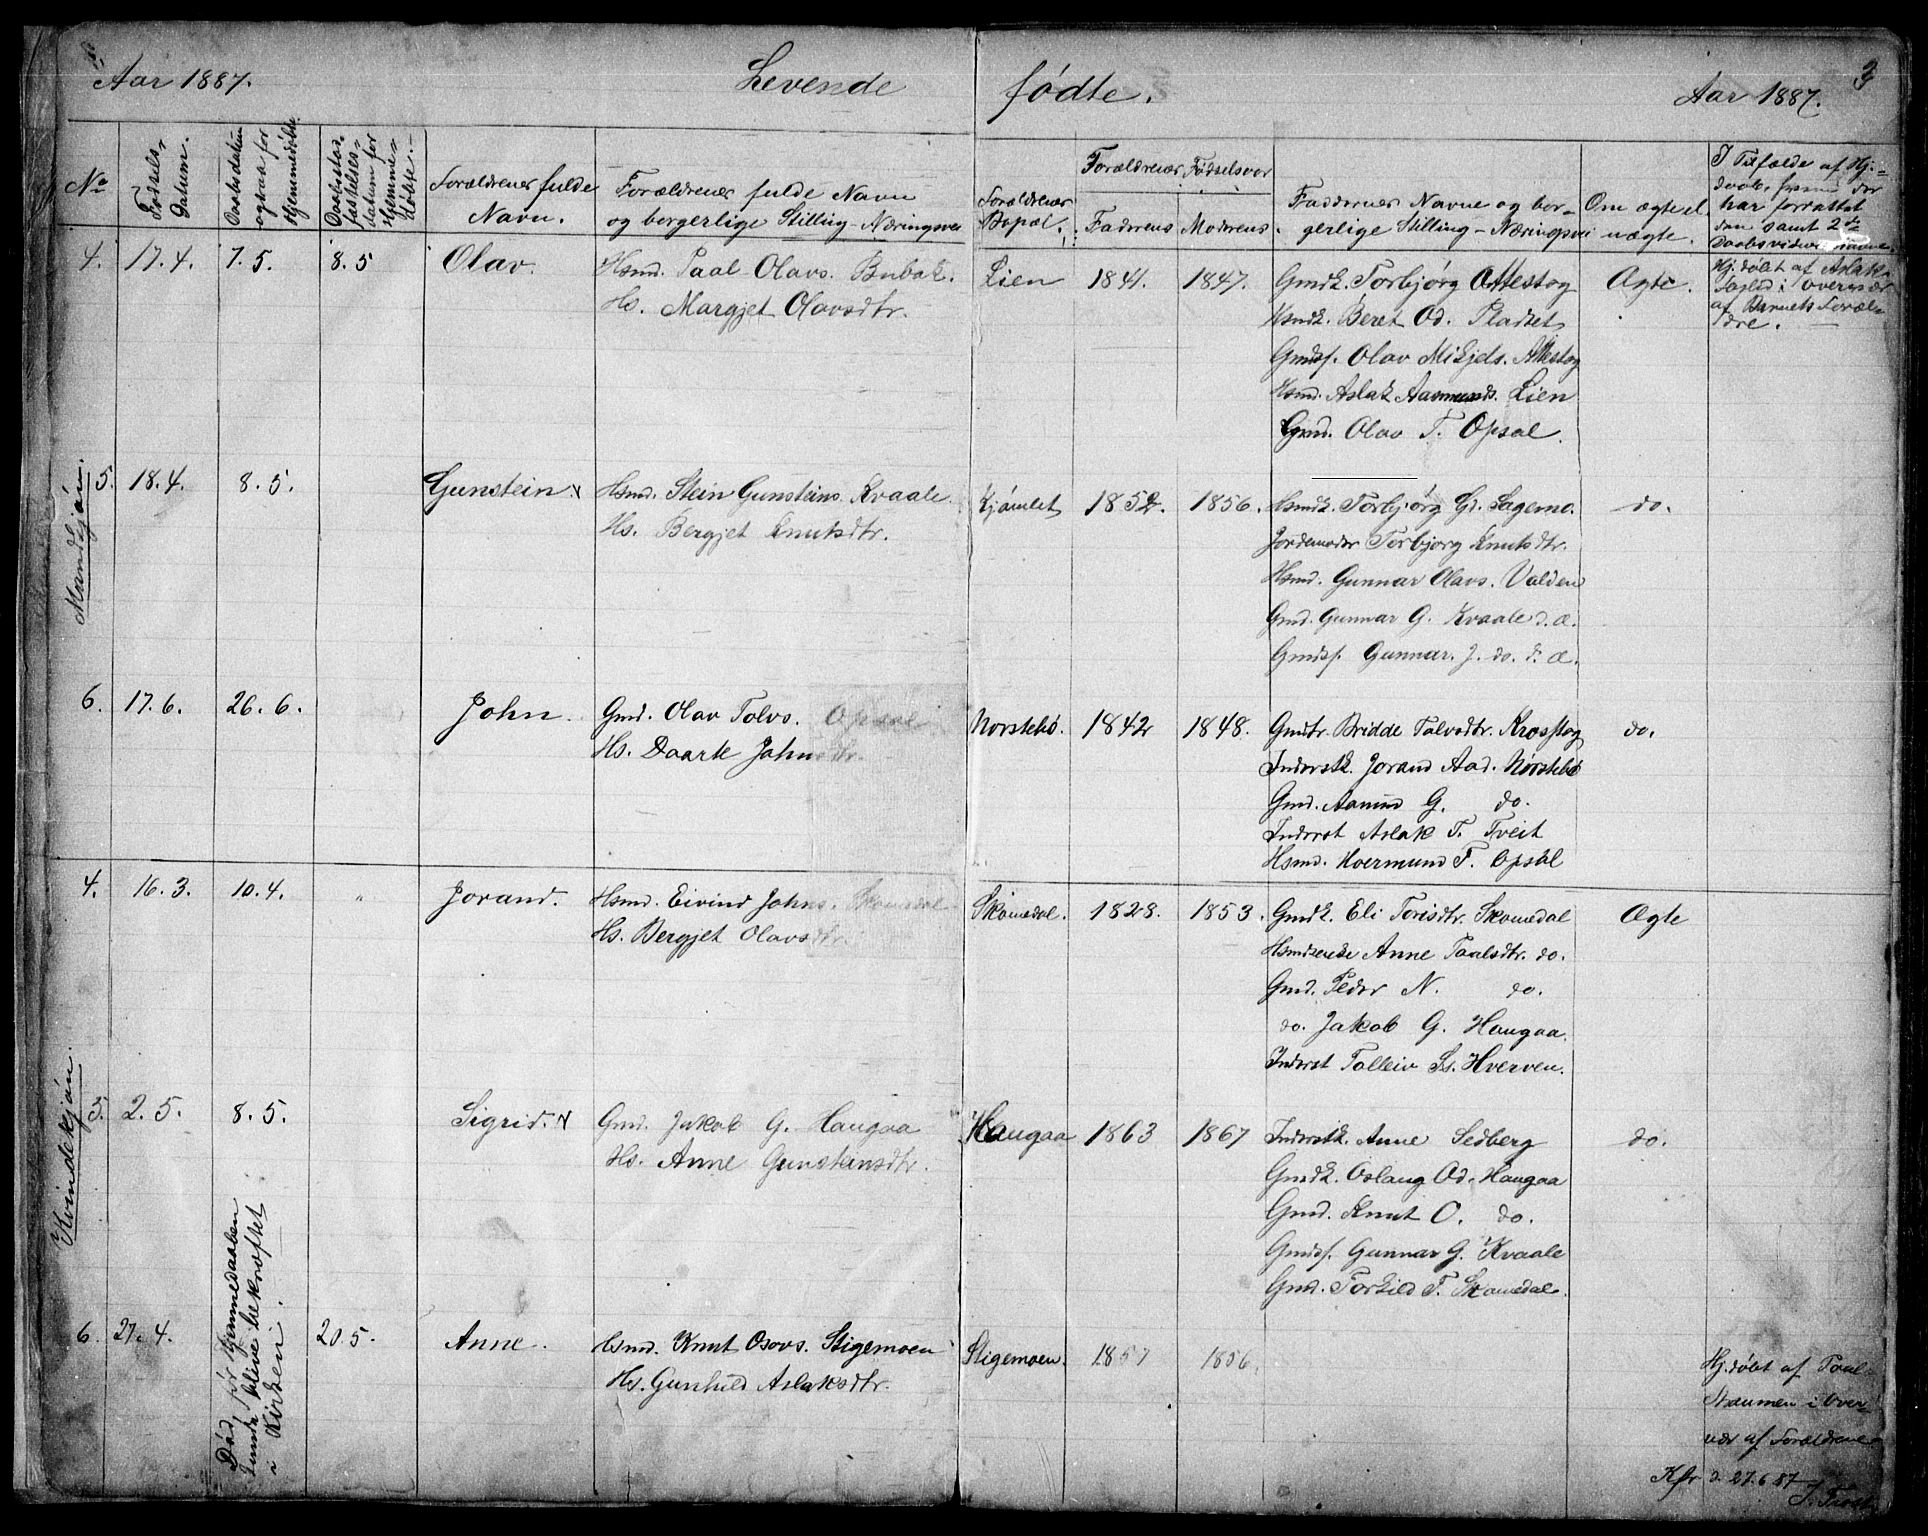 Aar 1887. Levende fødte. Aar 1887. 3
No
Fødsels-
Datum.
Daabsdatum
ogsaa for
Hjemmedøbte.
Daabsstad-
fæstelses-
datum for
Hjemme-
døbte.
Forældrenes fulde
Navn.
Forældrenes fulde Navn
og borgerlige Stilling - Næringsvei
Forældrenes
Bopæl.
Forældrenes Fødselsaar
Faderens Moderens
Faddernes Navne og bor-
gerlige Stilling - Næringsvei
Om ægte el.
uægte.
I Tilfælde af Hj.-
daab, hvem der
har forrettet
den samt 2de
Daabsvidner
Mandkjøn.
4. 17.4. 7.5. 8.5 Olav. Hsmd. Paal Olavs. Bubak. Lien 1841. 1847. Gmdk. Torbjørg Attestog Ægte.
Hs. Margjet Olavsdtr. Hsmdk. Beret Od. Pladset
Gmdsf. Olav Mikjels. Attestog
Hsmd. Aslak Aasmunds. Lien
Gmd. Olav T. Opsal.
Hj.døbt af Aslak
i Overvær
af Barnets Foræl-
dre.
5. 18.4. 8.5. Gunstein. Hsmd. Stein Gunsteins. Kvaale. Kjømlet 1852. 1856. Hsmdk. Torbjørg G. Sagemo. do.
Hs. Bergjet Knutsdtr. Jordemoder Torbjørg Knutsdtr.
Hsmd. Gunnar Olavs. Valden
Gmd. Gunnar G. Kvaale d. æ.
Gmdsf. Gunnar J. do. d. æ.
6. 17.6. 26.6. John. Gmd. Olav Talvs. Opsal. Norstebø. 1842 1848. Gmdtr. Bridde Talvsdtr. Krosstog do.
Hs. Daarte Johnsdtr. Inderstk. Jorand Aad. Nørstebø
Gmd. Aanund G. do.
Inderst Aslak T. Tveit
Hsmd. Hvermund T. Opsal
Kvindekjøn.
4. 16.3. 10.4. " Jorand. Hsmd. Eivind Johns. Skomedal Skomedal. 1828. 1853. Gmdk. Eli Torisdtr. Skomedal Ægte
Hs. Bergjet Olavsdtr. Hsmdenke Anne Paalsdtr. do.
Gmd. Peder N. do.
do. Jakob G. Haugaa.
Inderst Talleiv Ss. Hverven.
5. 2.5. 8.5. Sigrid. Gmd. Jakob G. Haugaa Haugaa 1863 1867 Inderstk. Anne Sedberg do.
Hs. Anne Gunsteinsdtr. Gmdk. Oslaug Od. Haugaa
Gmd. Knut O. do.
Gmdsf. Gunnar G. Kvaale
Gmd. Torkild T. Skomedal.
6. 27.4. 20.5. Anne. Hsmd. Knut Osovs. Stigemoen Stigemoen. 1857 1856.
Hs. Gunhild Aslaksdtr.
Død før Hjemmedaaben
kunde blive bekræftet
i Kirken.
Hj.døbt af Paal
Naumen i Over-
vær af Forældrene
Kfr d. 27.6 87